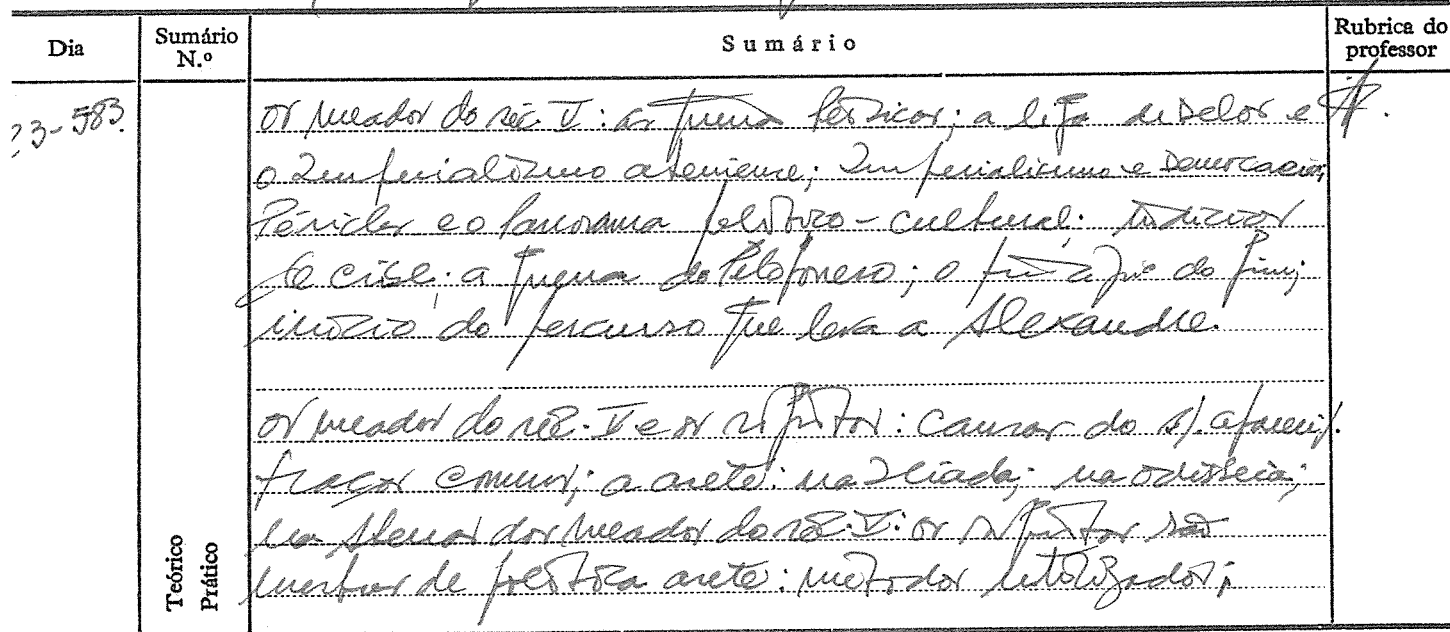 Dia
Sumário N.º
Sumário
Rubrica do professor
23-583.
Os meados do séc. V: as guerras Pérsicas; a liga de Delos e
o Imperialismo ateniense; Imperialismo e Democracia;
Péricles e o Panorama político-cultural; indícios
de crise; a guerra do Peloponeso; o princípio do fim;
início do percurso que leva a Alexandre.
Os meados do séc. V e os sofistas: causas do s/. aparecí/.
traços comuns; a arete: na Ilíada; na Odisseia;
na Atenas dos meados do séc. V: os sofistas são
mestres de política arete: métodos utilizados;
Teórico
Prático